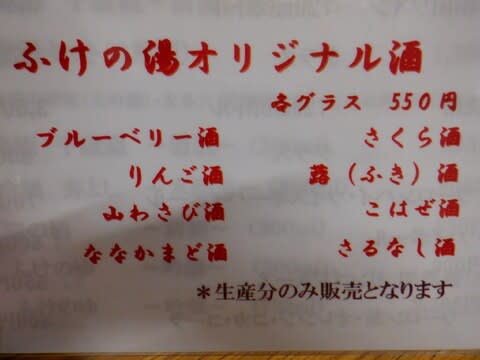 ふけの湯オリジナル酒
各グラス 550円
ブルーベリー酒 さくら酒
りんご酒 蕗（ふき）酒
山わさび酒 こはぜ酒
ななかまど酒 さるなし酒
＊生産分のみ販売となります